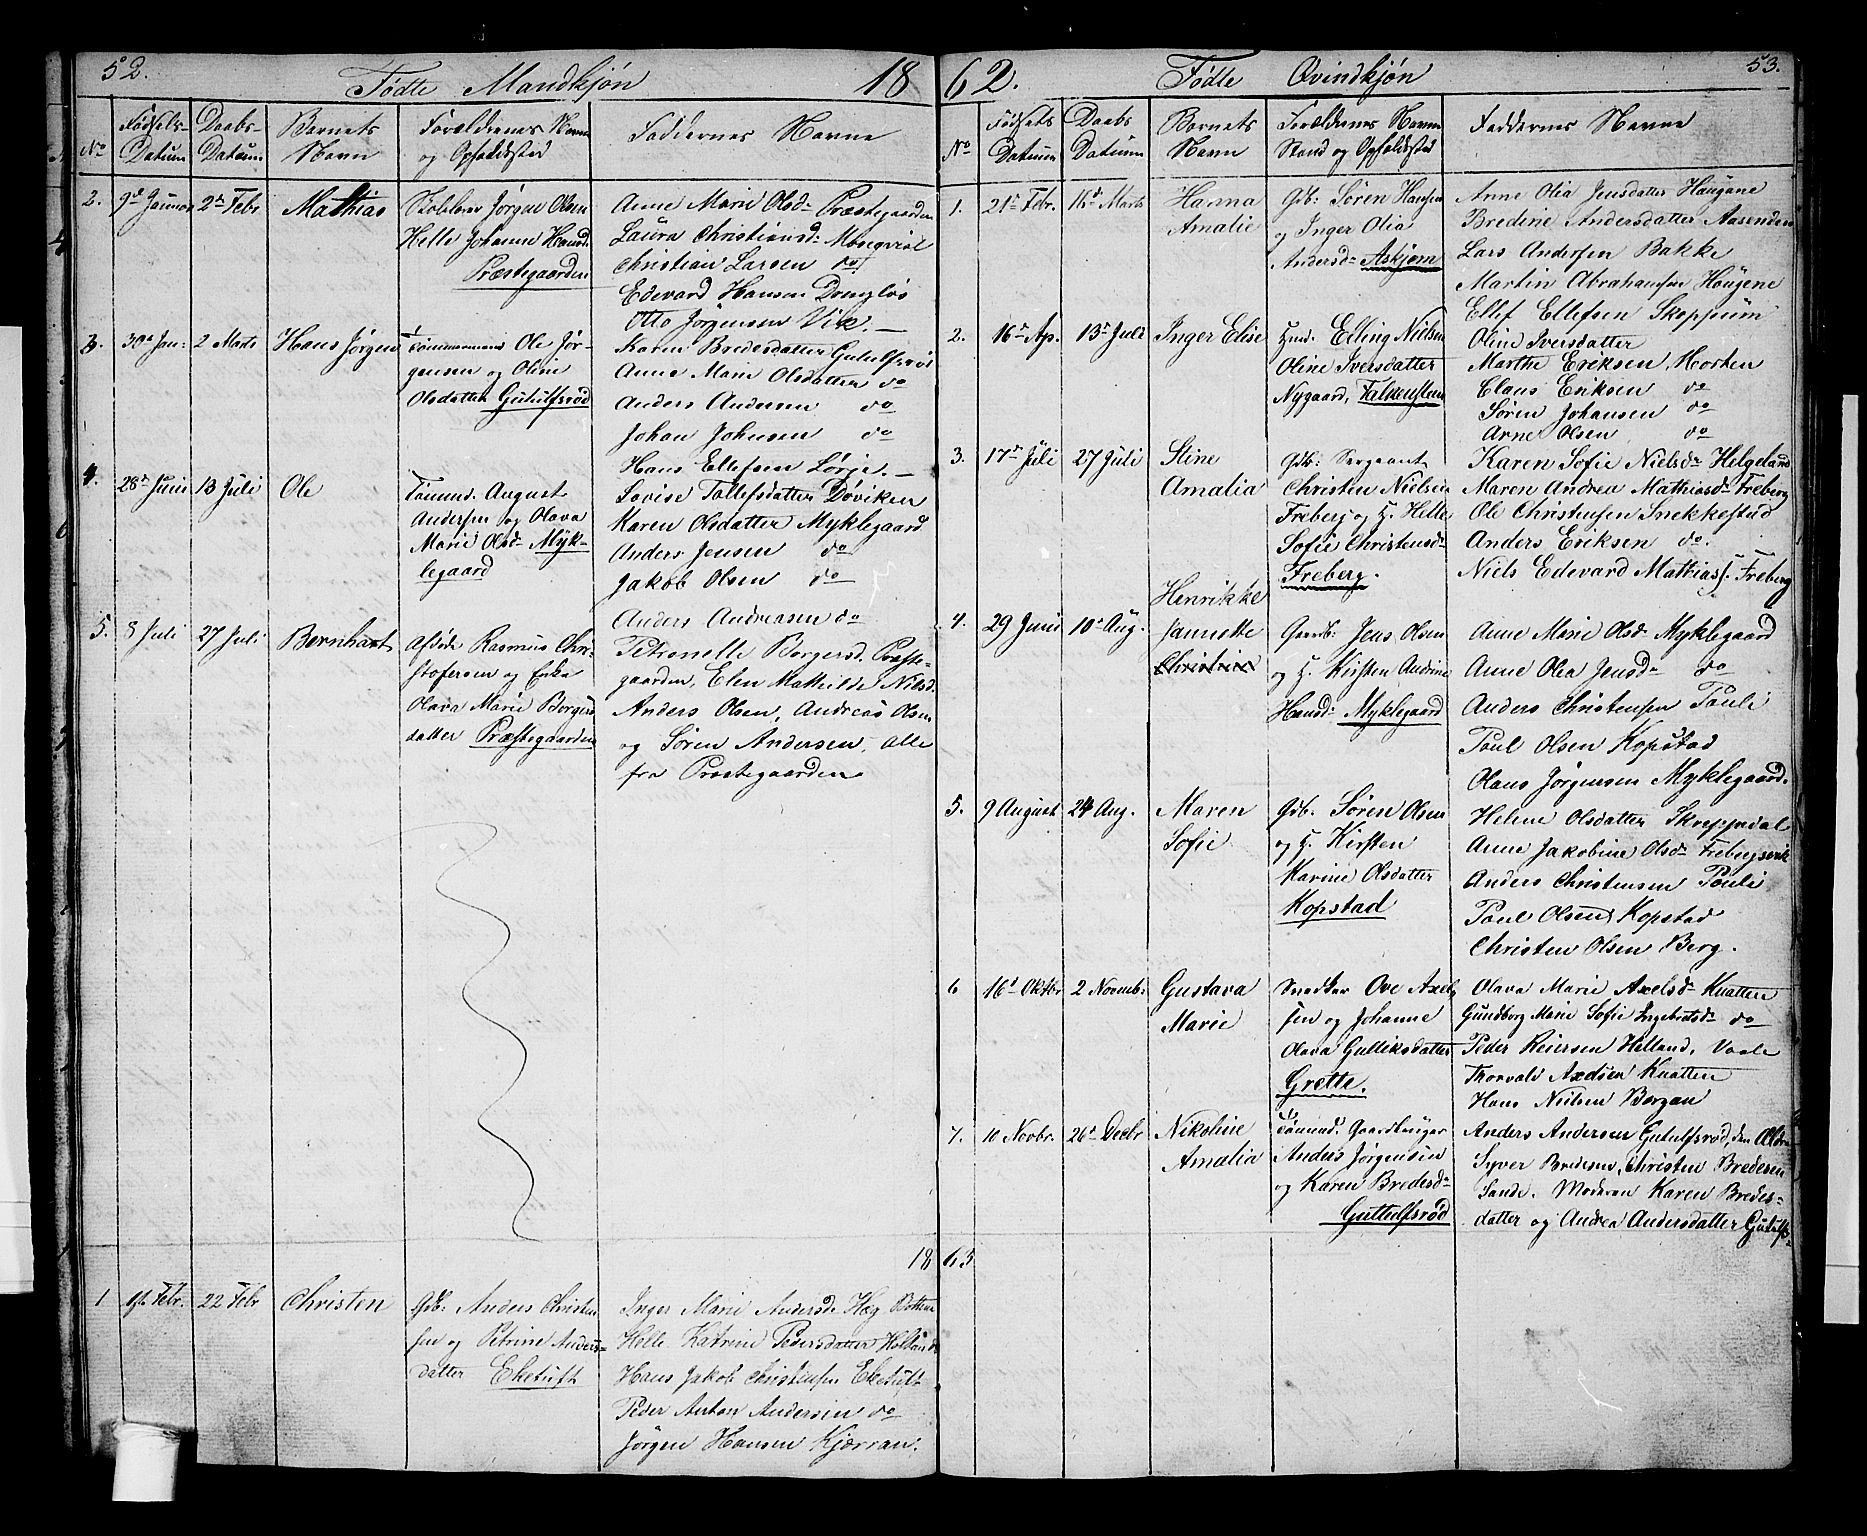 52.
Fødte Mandkjøn 18
No
Fødsels-
Datum
Daabs-
Datum
Barnets
Navn
Forældrenes Navne
og Opholdssted
Faddernes Navne
2. 9d Januar 2den Febr Mathias
Skolelærer Jørgen Olsen
Helle Johanne Hansd.
Præstegaarden
Anne Marie Olsd. Præstegaarden
Laura Christiansd:
Christian Larsen do
Edevard Hansen
Otto Jørgensen Vik.
3. 30te Jan: 2 Marts Hans Jørgen
Tømmermand Ole Jør-
gensen og Oline
Olsdatter Gutulfsrød
Karen Bredesdatter Gutulfsrød
Anne Marie Olsdatter do
Anders Andersen do
Johan Johnsen do
Hans Ellefsen Lørje.
4. 28de Juni 13 Juli Ole
Tømmd. August
Andersen og Olava
Marie Olsdr Myk-
legaard
Lovise Tollefsdatter Døviken
Karen Olsdatter Myklegaard
Anders Jensen do
Jakob Olsen do
Anders Andreasen do
5. 8 Juli 27 Juli Bernhart
afdøde Rasmus Chri-
stofersen og Enke
Olava Marie Borgers
datter Præstegaarden
Petronelle Borgersd. Præste-
gaarden, Elen Mathilde Nilsd.
Anders Olsen, Andreas Olsen
og Søren Andersen, alle
fra Præstegaarden
18
1 Febr. 22 Febr Christen
Gdb: Anders Christen
sen og Petrine Anders-
datter Eketuft
Inger Marie Andersdr Hæg Botten
Helle Katrine Pedersdatter Holtan do
Hans Jakob Christensen Eketuft
Peder Anton Andersen do
Jørgen Hansen Kjærran.
62. Fødte Qvindkjøn 53.
No
Fødsels
Datum
Daabs
Datum
Barnets
Navn
Forældrenes Navne
Stand og Opholdssted
Faddernes Navne
1. 21de Febr. 16d Marts Hanna
Amalie
Gdb: Søren Hansen
og Inger Olia
Andersdr Askjem
Anne Olia Jensdatter Haugane
Bredine Andersdatter Aasenden
Lars Andersen Bakke
Martin Abrahamsen Haugene
Ellef Ellefsen Skopsum
2. 16de Ap. 13de Juli Inger Elise
Hmd. Elling Nielsen
Oline Iversdatter
Nygaard, Falkensten
Oline Iversdatter
Marthe Eriksen, Horten
Claus Eriksen do
Søren Johansen do
Arne Olsen do
3. 17de Juli 27 Juli Stine
Amalia
Gdb: Sergeant
Christen Nielsen
Freberg og H. Helle
Sofie Christensdr
Freberg.
Karen Sofie Nielsdr Helgeland
Maren Andrea Mathiasdr Freberg
Ole Christensen Snekkestad
Anders Eriksen do.
Niels Edevard Mathiass. Freberg
4. 29 Juni 10d Aug. Henrikke
Jannette
Christine
Gaardb: Jens Olsen
og H. Kirsten Andrine
Hansd: Myklegaard
Anne Marie Olsd. Myklegaard
Anne Olea Jensdr do
Anders Christensen Pauli
Paul Olsen Kopstad
Olaus Jørgensen Myklegaard.
5. 9 August 24 Aug. Maren
Sofie
Gdb. Søren Olsen
og H. Kirsten
Karine Olsdatter
Kopstad
Helene Olsdatter Skreppedal
Anne Jakobine Olsdr Frebergsvik
Anders Christensen Pauli
Paul Olsen Kopstad
Christen Olsen Berg.
6 16d Oktbr 2 Novemb: Gustava
Marie
Snedker Ove Axel
sen og Johanne
Olava Gulliksdatter
Grette.
Olava Marie Axelsdr Knatten
Gundborg Marie Sofie Ingebretsdr do
Peder Reiersen Helland, Vaale
Thorvald Axelsen Knatten
Hans Nielsen Borgan
7. 10 Novbr. 26d Decbr Nikoline
Amalia
Tømmd. Gaardbruger
Anders Jørgensen
og Karen Bredesdr
Guttulfsrød
Anders Andersen Gutulfsrød, den Ældre
Syver Bredesen, Christen Bredesen
Sande. Moderen Karen Bredes-
datter og Andrea Andersdatter Gutulfs-
63